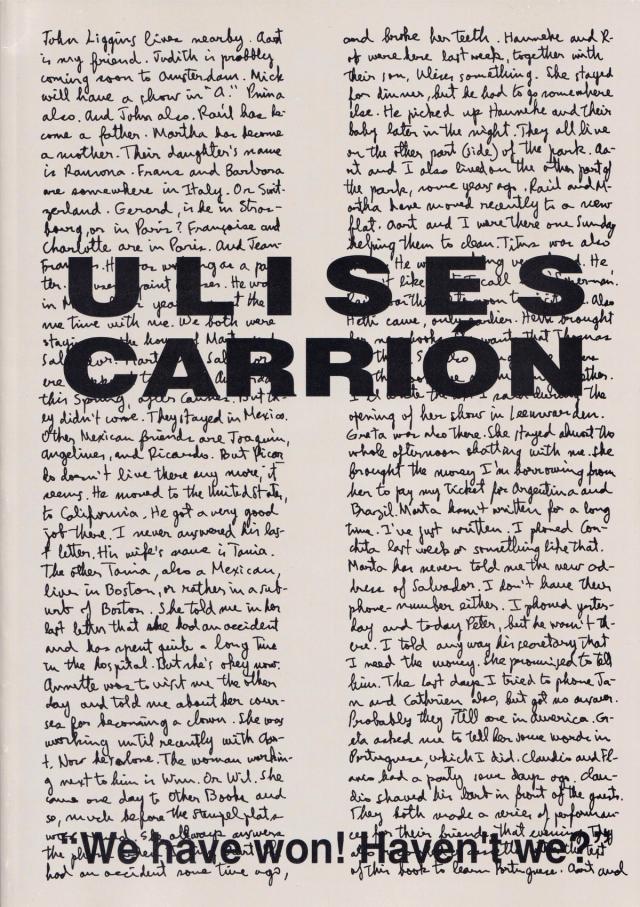 ULISES
CARRIÓN
John Liggins lives nearby. Aart
is my friend. Judith is probbly
coming soon to Amsterdam. Mick
will have a show in "A." Pnina
also. And John also. Raúl has be-
come a father. Martha has become
a mother. Their daughter's name
is Ramona. Frans and Barbara
are somewhere in Italy. Or Swit-
zerland. Gerard, is he in Stras-
bourg, or in Paris? Françoise and
Charlotte are in Paris. And Jean-
working as a pa
ter.
in M
me time with me. We both were
this Spring, after
ey didn't come. They stayed in Mexico.
Other Mexican friends are Joaquín,
Angelines, and Ricardo. But Ricar
do doesn't live there any more, it
seems. He moved to the United States,
to California. He got a very good
job there. I never answered his las-
t letter. His wife's name is Tania.
The other Tania, also a Mexican,
lives in Boston, or rather in a sub-
urb of Boston. She told me in her
last letter that she had an accident
and has spent quite a long time
in the hospital. But she's okey now.
Annette was to visit me the other
day and told me about her cour-
ses for becoming a clown. She was
working until recently with Aar-
t. Now he's alone. The woman workin-
g next to him is Wim. Or Wil. She
came one day to Other Books and
so, much before the stempelplats
She allways answers
the
had an accident some time ago,
and broke her teeth. Hanneke and R-
ot were here last week, together with
their son, Ulises something. She stayed
for dinner, but he had to go somewhere
else. He picked up Hanneke and their
baby later in the night. They all live
on the other part (side) of the park. Aa-
rt and I also lived on the other part of
the park, some years ago. Raúl and M-
artha have moved recently to a new
flat. Aart and I were there one Sunday
helping them to clean. Titus was also
He
it like
also
Hetti came, only earlier. Hetti brought
want that Thomas
the
opening of her show in Leeuwarden.
Greta was also there. She stayed almost the
whole afternoon chatting with me. She
brought the money I'm borrowing from
her to pay my ticket for Argentina and
Brazil. Marta hasn't written for a long
time. I've just written. I phoned Con-
chita last week or something like that.
Marta has never told me the new ad-
dress of Salvador. I don't have their
phone-number either. I phoned yester-
day and today Peter, but he wasn't th-
ere. I told anyway his secretary that
I need the money. She promised to tell
him. The last days I tried to phone Ja-
n and Cathrien also, but got no answer.
Probably they still are in America. Gr-
eta asked me to tell her some words in
Portuguese, which I did. Claudio and Fl-
avio had a party some days ago. Clau-
dio shaved his bart in front of the guests.
They both made a series of performan-
ces for their friends that evening. They
text
of this book to learn Portuguese. Aart and
"We have won! Haven't we?"